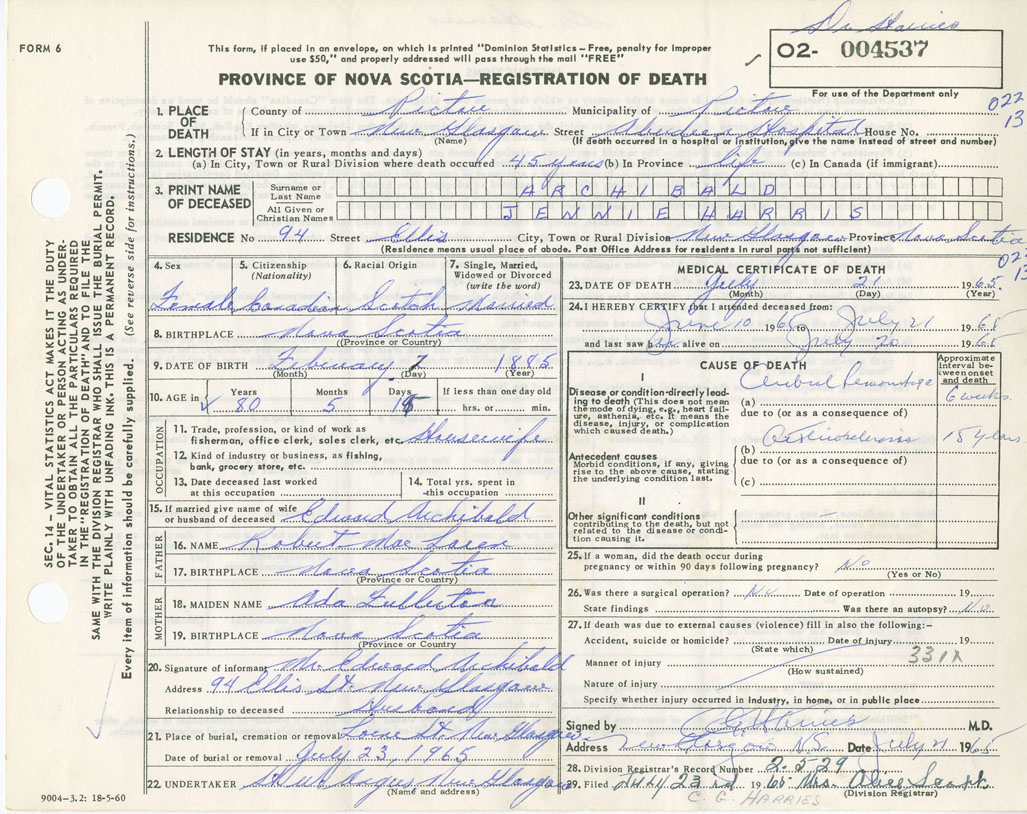 Dr Harries
FORM 6
This form, if placed in an envelope, on which is printed "Dominion Statistics – Free, penalty for improper
use $50," and properly addressed will pass through the mail "FREE"
02- 004537
PROVINCE OF NOVA SCOTIA—REGISTRATION OF DEATH
For use of the Department only
022
13
1. PLACE OF DEATH
County of Pictou Municipality of Pictou
If in City or Town New Glasgow Street Aberdeen Hospital House No.
(Name) (If death occurred in a hospital or institution, give the name instead of street and number)
2. LENGTH OF STAY (in years, months and days)
(a) In City, Town or Rural Division where death occurred 45 years (b) In Province life (c) In Canada (if immigrant)
3. PRINT NAME OF DECEASED
Surname or Last Name ARCHIBALD
All Given or Christian Names JENNIE HARRIS
RESIDENCE No 94 Street Ellis City, Town or Rural Division New Glasgow Province Nova Scotia
(Residence means usual place of abode. Post Office Address for residents in rural parts not sufficient)
022
13
4. Sex 5. Citizenship (Nationality) 6. Racial Origin 7. Single, Married, Widowed or Divorced (write the word)
Female Canadian Scotch Married
8. BIRTHPLACE Nova Scotia
(Province or Country)
9. DATE OF BIRTH February 7 1885
(Month) (Day) (Year)
10. AGE in Years Months Days If less than one day old
80 5 hrs. or min.
OCCUPATION
11. Trade, profession, or kind of work as
fisherman, office clerk, sales clerk, etc. Housewife
12. Kind of industry or business, as fishing,
bank, grocery store, etc.
13. Date deceased last worked
at this occupation
14. Total yrs. spent in
this occupation
15. If married give name of wife
or husband of deceased Edward Archibald
FATHER
16. NAME Robert Mac Laren
17. BIRTHPLACE Nova Scotia
(Province or Country)
MOTHER
18. MAIDEN NAME Ada Fullerton
19. BIRTHPLACE Nova Scotia
(Province or Country)
20. Signature of informant Mr. Edward Archibald
Address 94 Ellis St. New Glasgow
Relationship to deceased Husband
21. Place of burial, cremation or removal St. New Glasgow
Date of burial or removal July 23, 1965
22. UNDERTAKER New Glasgow
(Name and address)
9004–3.2: 18-5-60
MEDICAL CERTIFICATE OF DEATH
23. DATE OF DEATH July 21 1965
(Month) (Day) (Year)
24. I HEREBY CERTIFY that I attended deceased from:
June 10 1965 to July 21 1965
and last saw her alive on July 20 1965
CAUSE OF DEATH
Approximate interval between onset and death
I
Disease or condition directly leading to death (This does not mean the mode of dying, e.g., heart failure, asthenia, etc. It means the disease, injury, or complication which caused death.)
(a) Cerebral hemorrhage 6 weeks
due to (or as a consequence of)
Antecedent causes
Morbid conditions, if any, giving rise to the above cause, stating the underlying condition last.
(b) Arteriosclerosis 15 years
due to (or as a consequence of)
(c)
II
Other significant conditions
contributing to the death, but not related to the disease or condition causing it.
25. If a woman, did the death occur during
pregnancy or within 90 days following pregnancy? No
(Yes or No)
26. Was there a surgical operation? No Date of operation 19
State findings Was there an autopsy? No
27. If death was due to external causes (violence) fill in also the following:–
Accident, suicide or homicide? Date of injury 19
(State which)
331X
Manner of injury
(How sustained)
Nature of injury
Specify whether injury occurred in industry, in home, or in public place
Signed by C G Harries M.D.
Address New Glasgow N.S. Date July 21 1965
28. Division Registrar's Record Number 2-5-29
29. Filed July 23rd 1965 Mrs. Alice
(Division Registrar)
C. G. HARRIES
SEC. 14 – VITAL STATISTICS ACT MAKES IT THE DUTY
OF THE UNDERTAKER OR PERSON ACTING AS UNDER-
TAKER TO OBTAIN ALL THE PARTICULARS REQUIRED
IN THE "REGISTRATION OF DEATH" AND TO FILE THE
SAME WITH THE DIVISION REGISTRAR WHO SHALL ISSUE THE BURIAL PERMIT.
WRITE PLAINLY WITH UNFADING INK. THIS IS A PERMANENT RECORD.
Every item of information should be carefully supplied. (See reverse side for instructions.)